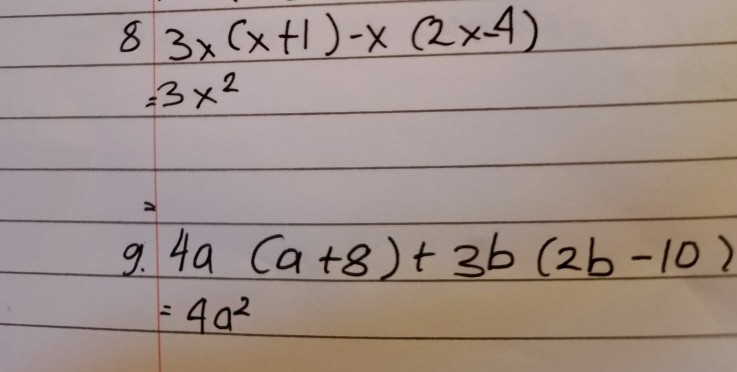 8 3x(x+1)-x (2x-4)
=3x²
=
9. 4a (a+8)+ 3b (2b-10)
= 4a²